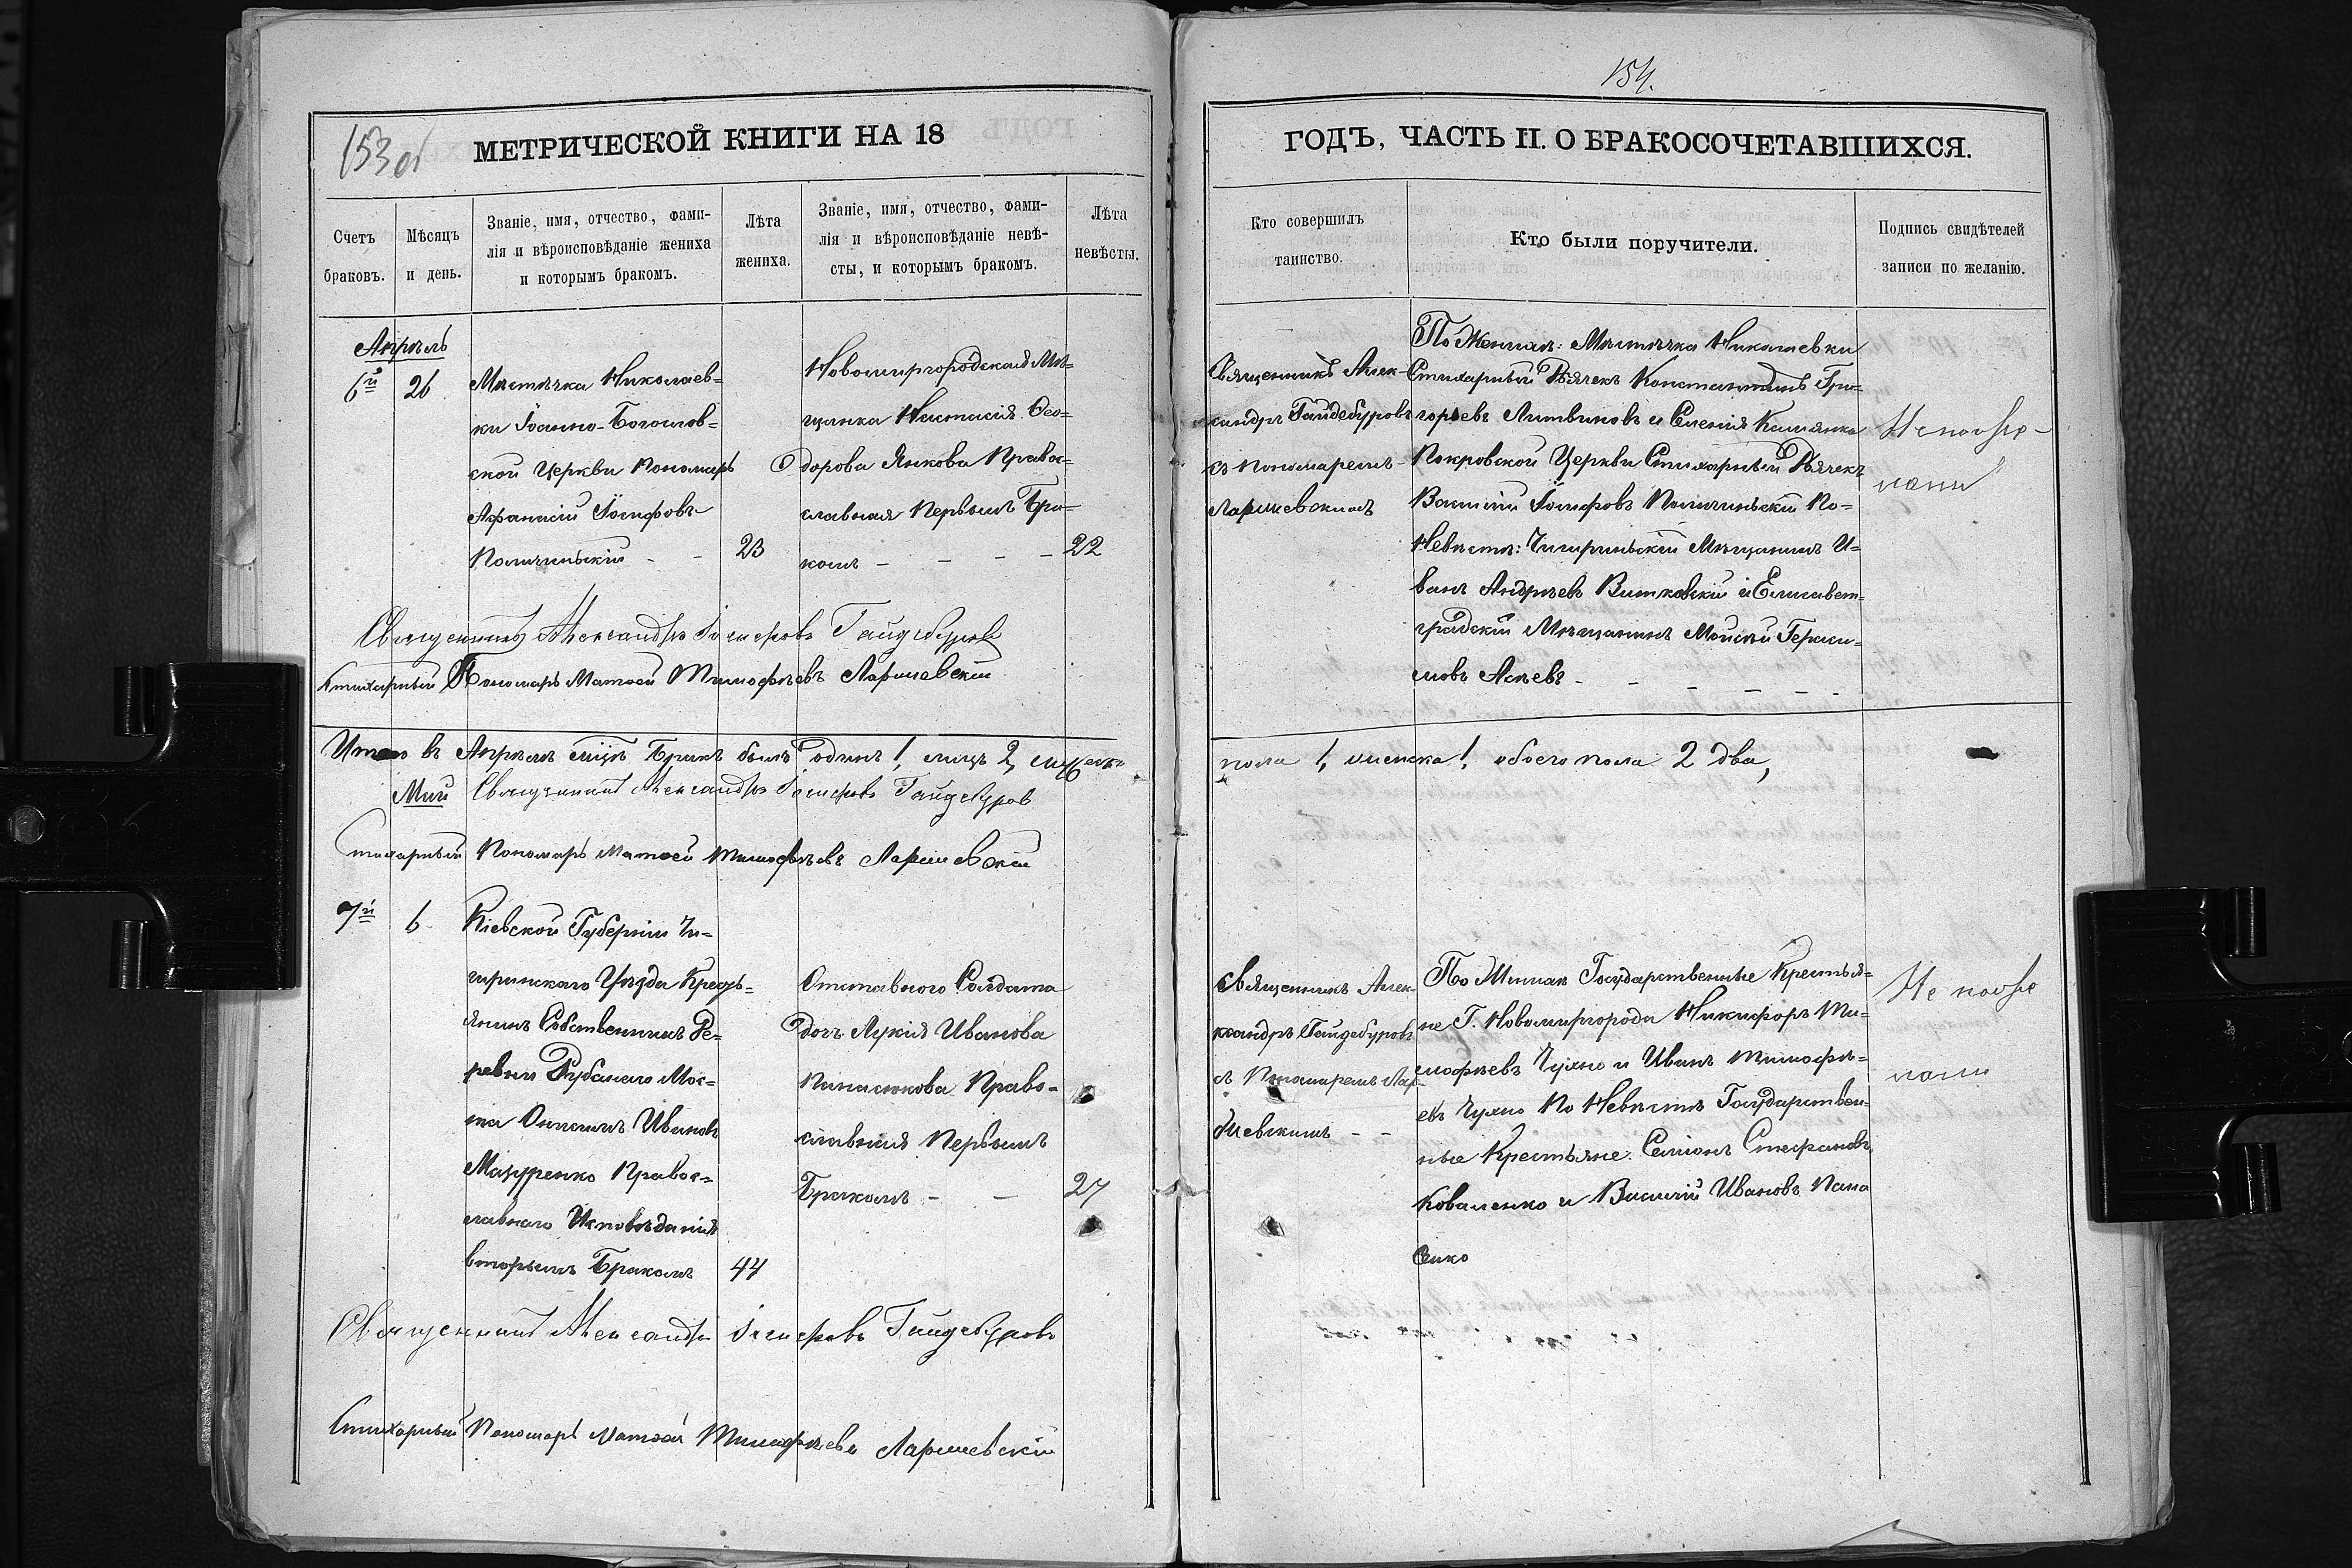 153 об
МЕТРИЧЕСКОЙ КНИГИ НА 18
Счетъ
браковъ.
Мѣсяцъ
и день.
Званіе, имя, отчество, фами-
лія и вѣроисповѣданіе жениха
и которымъ бракомъ.
Лѣта
жениха.
Званіе, имя, отчество, фами-
лія и вѣроисповѣданіе невѣ-
сты, и которымъ бракомъ.
Лѣта
невѣсты.
Апрѣль
6й
26
Мѣстечка Николаев=
ки Іоанно-Богослов=
ской Церкви Пономарь
Афанасій Іосифовъ
23
Новомиргородская Мѣ=
щанка Настасія Ѳео=
дорова Янкова Правос=
лавная Первымъ Бра-
комъ
22
Священникъ Александръ Іосифовъ Гайдебуровъ
Стихарный Пономарь Матѳей Тимофѣевъ Ларшевскій
Итого въ Апрѣлѣ мцѣ Бракъ былъ одинъ 1, лицъ 2,
Май
Священникъ Александръ Іосифовъ Гайдебуров
Стихарный Пономарь Матѳей Тимофѣевъ Ларшевскій
7й
6
Кіевской Губерніи Чи=
гиринскаго Уѣзда Кресть=
янинъ Собственникъ Де=
ревни Рубанаго Мос=
та Онисимъ Ивановъ
Мазуренко Правос=
лавнаго Исповѣданія
вторымъ Бракомъ
44
Отставнаго Солдата
дочь Лукія Иванова
Панасюкова Право-
славная Первымъ
Бракомъ
27
Священникъ Александръ Іосифовъ Гайдебуровъ
Стихарный Пономарь Матѳей Тимофѣевъ Ларшевскій
154.
ГОДЪ, ЧАСТЬ II. О БРАКОСОЧЕТАВШИХСЯ.
Кто совершилъ
таинство.
Кто были поручители.
Подпись свидѣтелей
записи по желанію.
Священникъ Алек-
сандръ Гайдебуровъ
съ Пономаремъ
Ларшевскимъ
По Женихѣ: Мѣстечка Николаевки
Стихарный Дьячекъ Константинъ Гри-
горьевъ Литвиновъ и Селенія
Покровской Церкви Стихарный Дьячекъ
Василій Іосифовъ По=
Невѣстѣ: Чигиринскій Мѣщанинъ И=
ванъ Андрѣевъ Витковскій и Елисавет=
градскій Мѣщанинъ Моисей Гераси-
мовъ
пола 1, женска 1, обоего пола 2 два,
Священникъ Алек-
сандръ Гайдебуровъ
съ Пономаремъ Лар-
шевскимъ
По Женихѣ Государственные Крестья=
не Г. Новомиргорода Никифоръ Ти=
мофѣевъ Чухно и Иванъ Тимофѣ=
евъ Чухно По Невѣстѣ Государствен=
ные Крестьяне Семіонъ Стефановъ
Коваленко и Василій Ивановъ Пана
сенко